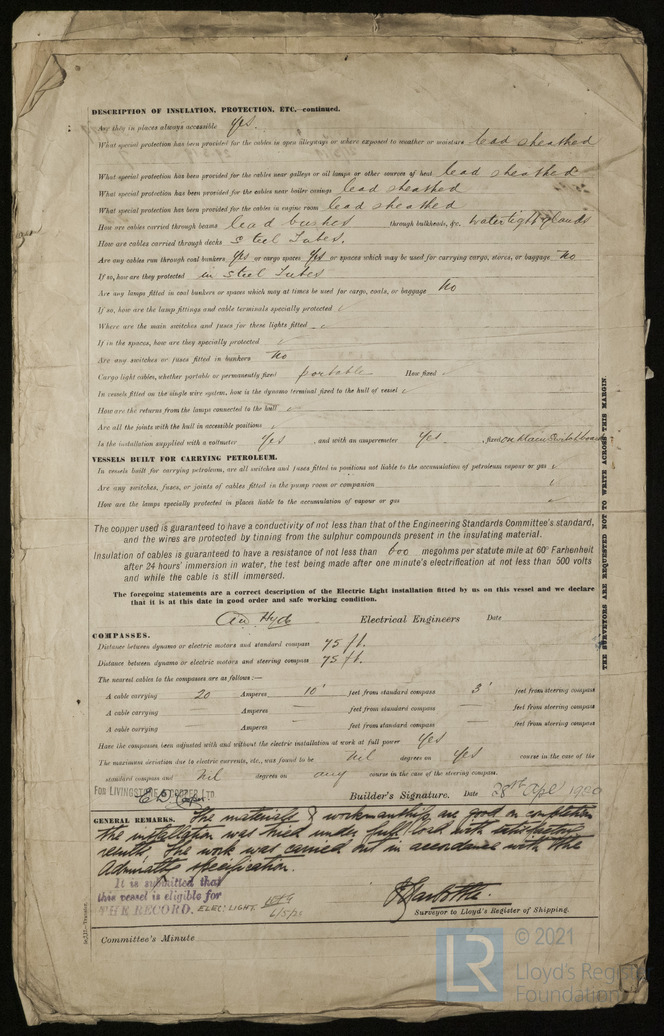 DESCRIPTION OF INSULATION, PROTECTION, ETC.—continued.
Are they in places always accessible Yes.
What special protection has been provided for the cables in open alleyways or where exposed to weather or moisture lead sheathed
What special protection has been provided for the cables near galleys or oil lamps or other sources of heat lead sheathed
What special protection has been provided for the cables near boiler casings lead sheathed
What special protection has been provided for the cables in engine room lead sheathed
How are cables carried through beams lead bushes through bulkheads, &c. Watertight glands
How are cables carried through decks steel Tubes.
Are any cables run through coal bunkers Yes or cargo spaces Yes or spaces which may be used for carrying cargo, stores, or baggage No
If so, how are they protected in steel Tubes
Are any lamps fitted in coal bunkers or spaces which may at times be used for cargo, coals, or baggage No
If so, how are the lamp fittings and cable terminals specially protected ✓
Where are the main switches and fuses for these lights fitted ✓
If in the spaces, how are they specially protected ✓
Are any switches or fuses fitted in bunkers No
Cargo light cables, whether portable or permanently fixed portable How fixed ✓
In vessels fitted on the single wire system, how is the dynamo terminal fixed to the hull of vessel ✓
How are the returns from the lamps connected to the hull ✓
Are all the joints with the hull in accessible positions ✓
Is the installation supplied with a voltmeter Yes, and with an amperemeter Yes, fixed on Main Switchboard
VESSELS BUILT FOR CARRYING PETROLEUM.
In vessels built for carrying petroleum, are all switches and fuses fitted in positions not liable to the accumulation of petroleum vapour or gas ✓
Are any switches, fuses, or joints of cables fitted in the pump room or companion ✓
How are the lamps specially protected in places liable to the accumulation of vapour or gas ✓
The copper used is guaranteed to have a conductivity of not less than that of the Engineering Standards Committee's standard,
and the wires are protected by tinning from the sulphur compounds present in the insulating material.
Insulation of cables is guaranteed to have a resistance of not less than 600 megohms per statute mile at 60° Farhenheit
after 24 hours' immersion in water, the test being made after one minute's electrification at not less than 500 volts
and while the cable is still immersed.
The foregoing statements are a correct description of the Electric Light installation fitted by us on this vessel and we declare
that it is at this date in good order and safe working condition.
Hyde Electrical Engineers Date
COMPASSES.
Distance between dynamo or electric motors and standard compass 75 ft.
Distance between dynamo or electric motors and steering compass 75 ft.
The nearest cables to the compasses are as follows:—
A cable carrying 20 Amperes 10' feet from standard compass 3' feet from steering compass
A cable carrying — Amperes — feet from standard compass — feet from steering compass
A cable carrying — Amperes — feet from standard compass — feet from steering compass
Have the compasses been adjusted with and without the electric installation at work at full power Yes
The maximum deviation due to electric currents, etc., was found to be Nil degrees on Yes course in the case of the
standard compass and Nil degrees on any course in the case of the steering compass.
FOR LIVINGSTONE & COOPER LTD.
Cooper Builder's Signature. Date 28th Apl 1920
GENERAL REMARKS. The materials & workmanship are good on completion
the installation was tried under full load with satisfactory
results, The work was carried out in accordance with the
Admiralty specification.
It is submitted that
this vessel is eligible for
THE RECORD. ELEC. LIGHT. 6/5/20
Surveyor to Lloyd's Register of Shipping.
Committee's Minute
THE SURVEYORS ARE REQUESTED NOT TO WRITE ACROSS THIS MARGIN.
LR
© 2021
Lloyd's Register
Foundation